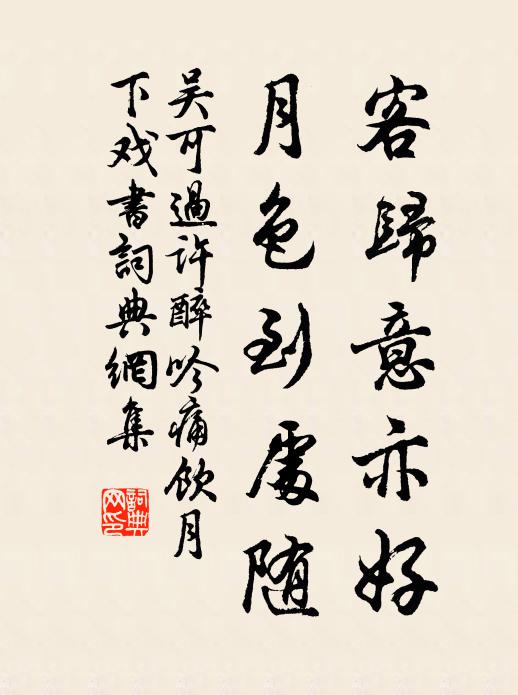 客歸意亦好
月色到處随
吴可過许醉吟痛饮月
下戏書詞典網集
詞典
网印